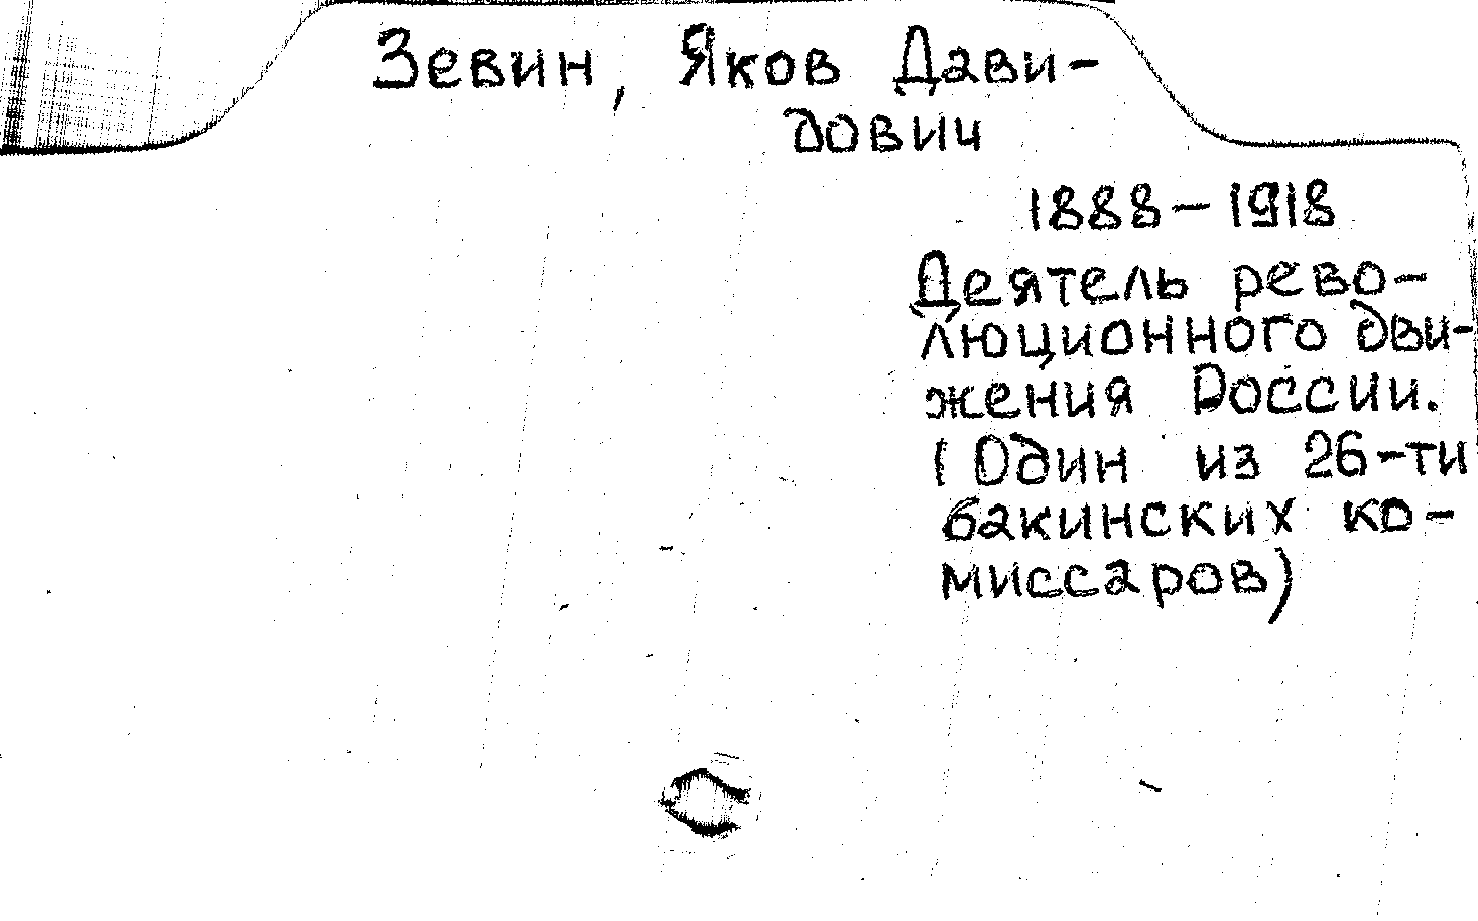 Зевин, Яков Дави-
дович
1888-1918
Деятель рево-
люционного дви-
жения России.
(Один из 26-ти
бакинских ко-
миссаров)